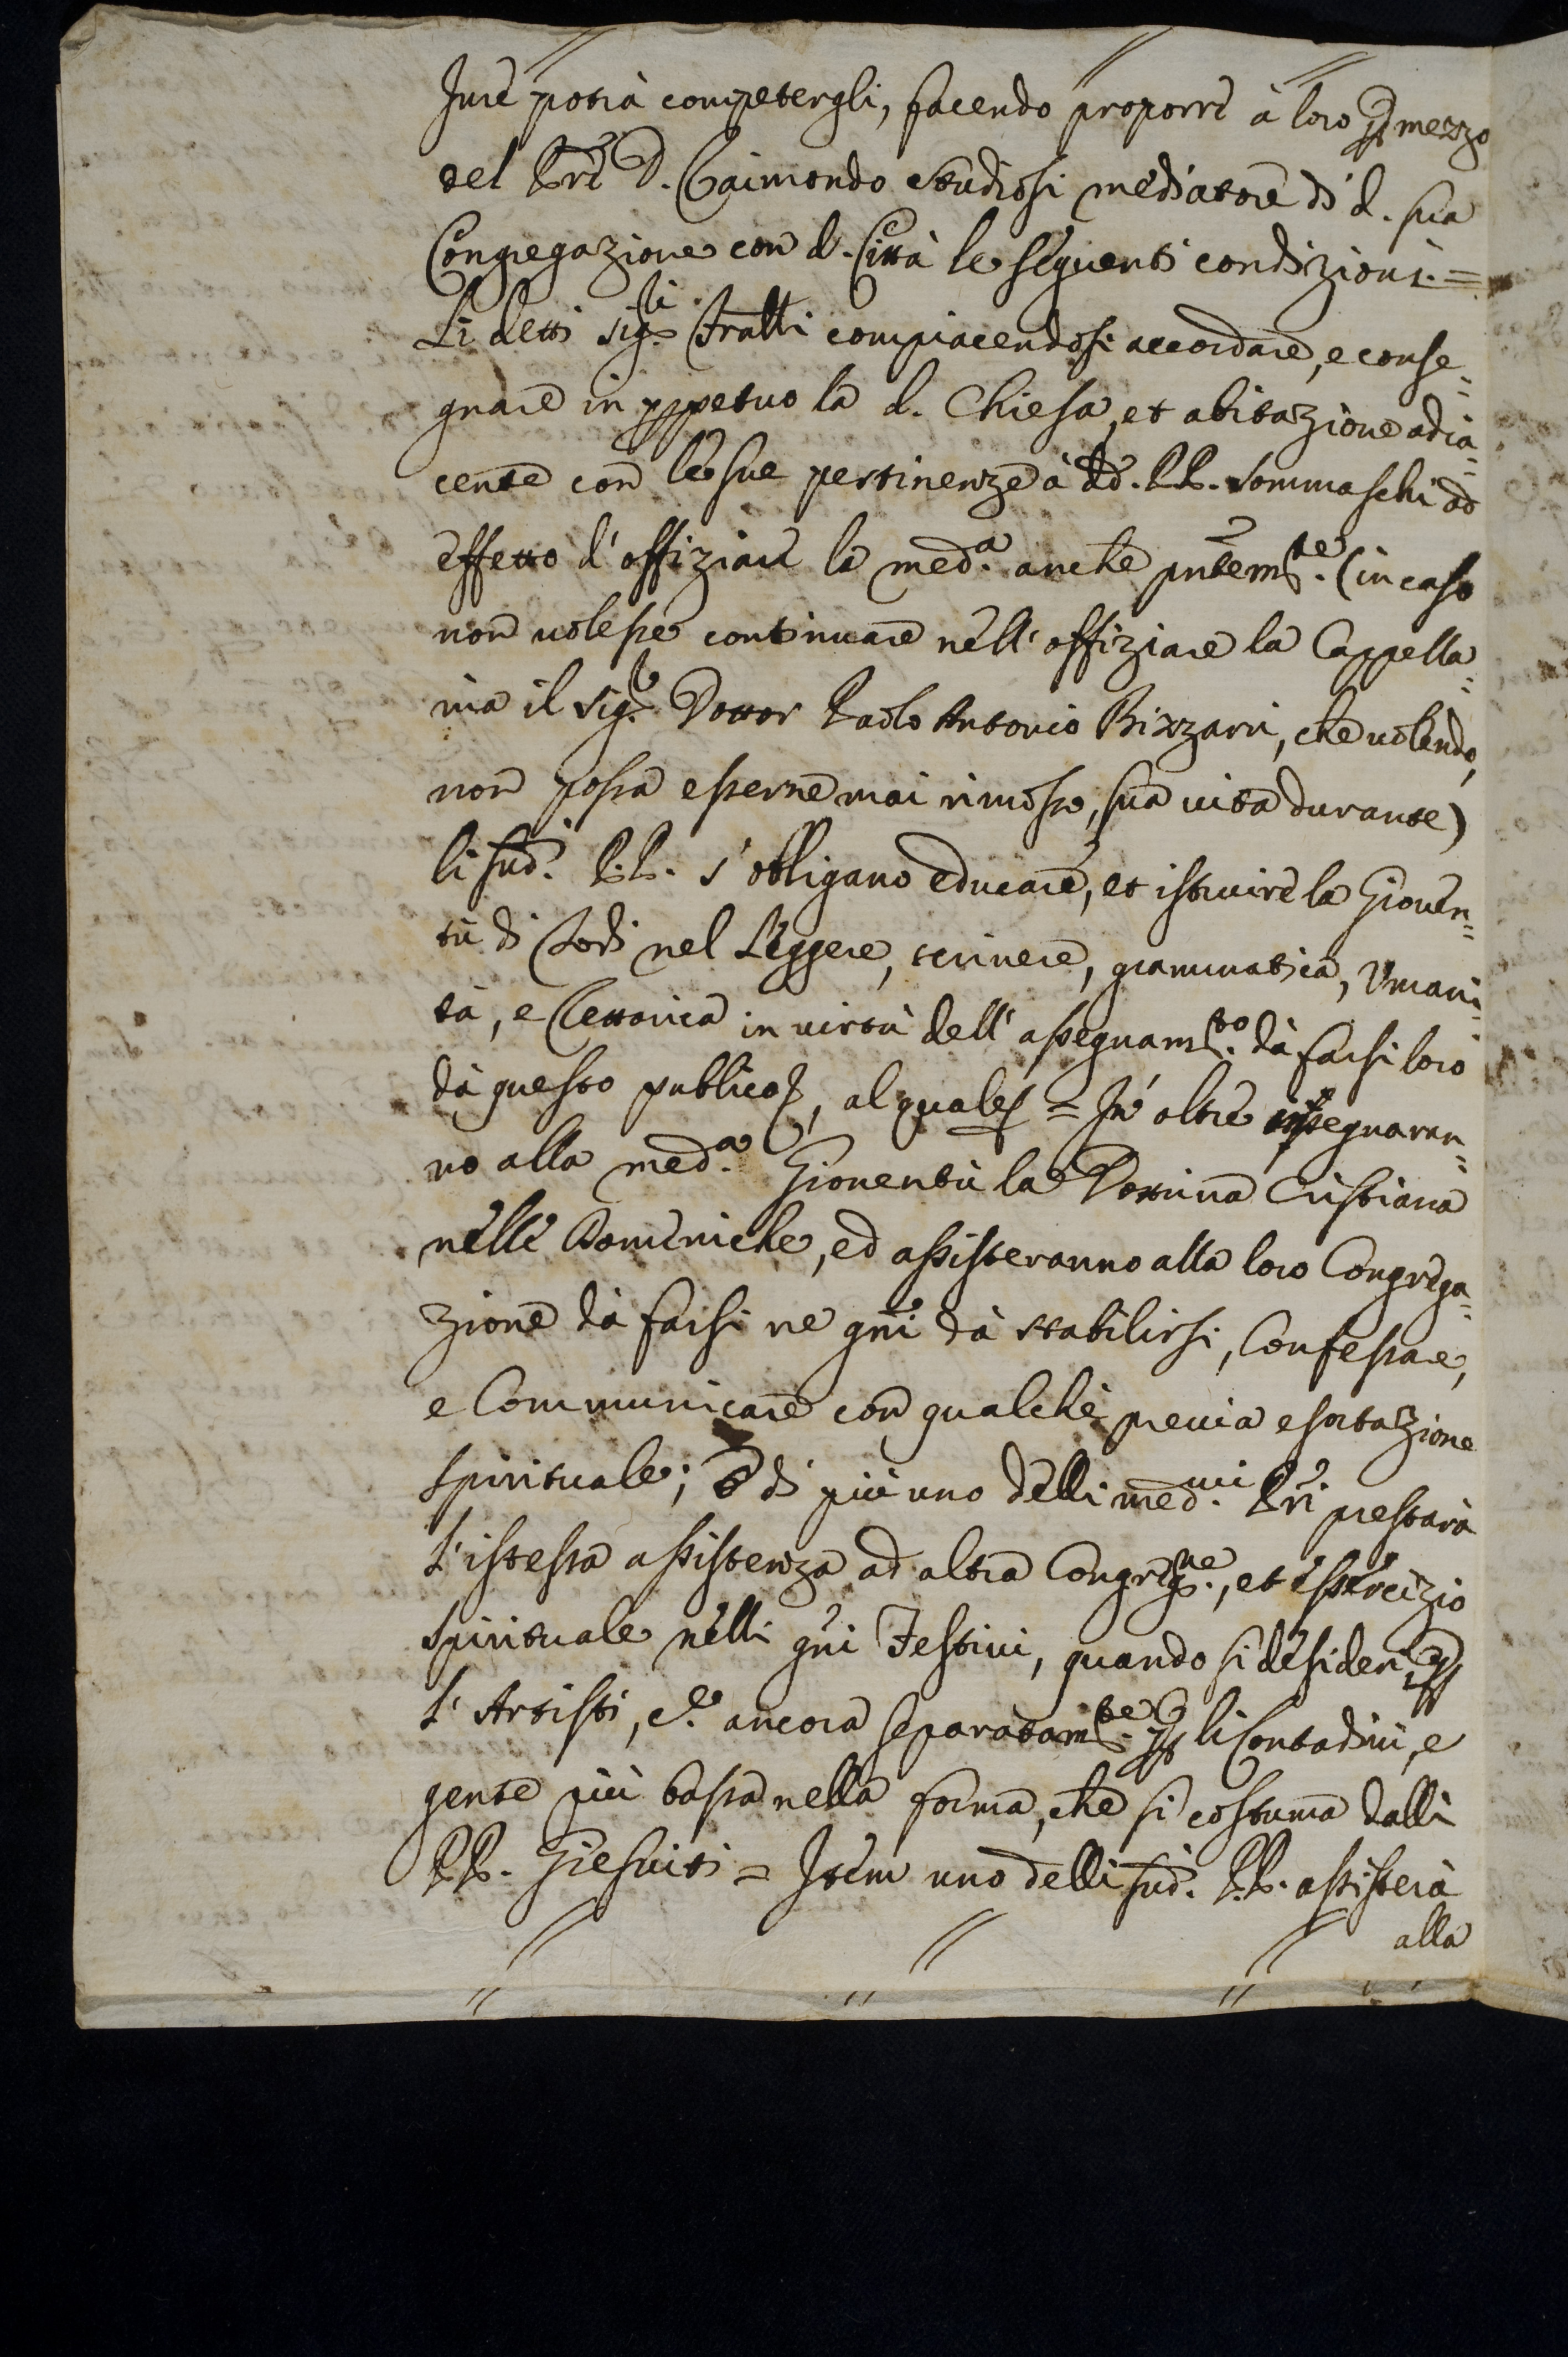 Jure potrà competergli, facendo proporre à loro p mezzo
del Pre D. Raimondo Studiosi mediatore di d. sua
Congregazione con d. Città le seguenti condizioni. =
Li detti Sig.ri Fratti compiacendosi accordare, e conse=
gnare in ppetuo la d. Chiesa, et abitazione adia=
cente con le sue pertinenze à dd. PP. Sommaschi ad
effetto d'offiziare la med.a anche pntem.te (in caso
non volesse continuare nell'offiziare la Cappella=
nia il Sig.r Dottor Paolo Antonio Bizzarri, che volendo,
non possa esserne mai rimosso, sua vita durante)
li sud. P.P. s'obligano educare, et istruire la Gioven=
tù di Todi nel Leggere, scrivere, grammatica, Umani=
tà, e Rettorica in virtù dell'assegnam.to dà farsi loro
dà questo publico, al quale = In oltre insegnaran=
no alla med.a Gioventù la Dottrina Cristiana
nelle Domeniche, ed assisteranno alla loro Congrega=
zione dà farsi ne gni dà stabilirsi, Confessare,
e Communicare con qualche previa esortazione
spirituale; e di più uno delli med.mi Pri prestarà
l'istessa assistenza ad altra Congreg.ne, et essercizio
spirituale nelli gni Festivi, quando si desideri, p
l'Artisti, e ancora separatam.te p li Contadini, e
gente più bassa nella forma, che si costuma dalli
PP. Giesuiti = Item uno delli sud. P.P. assisterà
alla